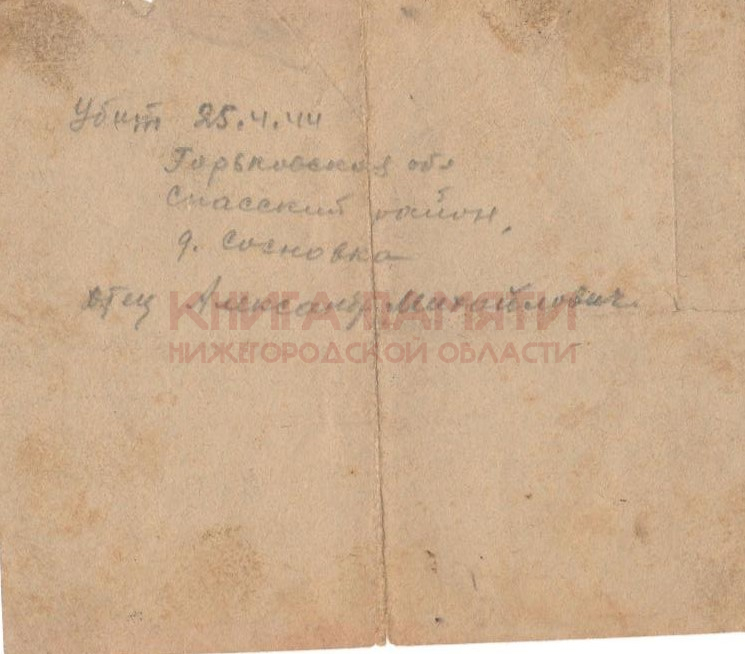 Убит 25.4.44
Горьковская обл
Спасский район,
д. Сосновка
Отец Александр Михайлович.
КНИГА ПАМЯТИ
НИЖЕГОРОДСКОЙ ОБЛАСТИ